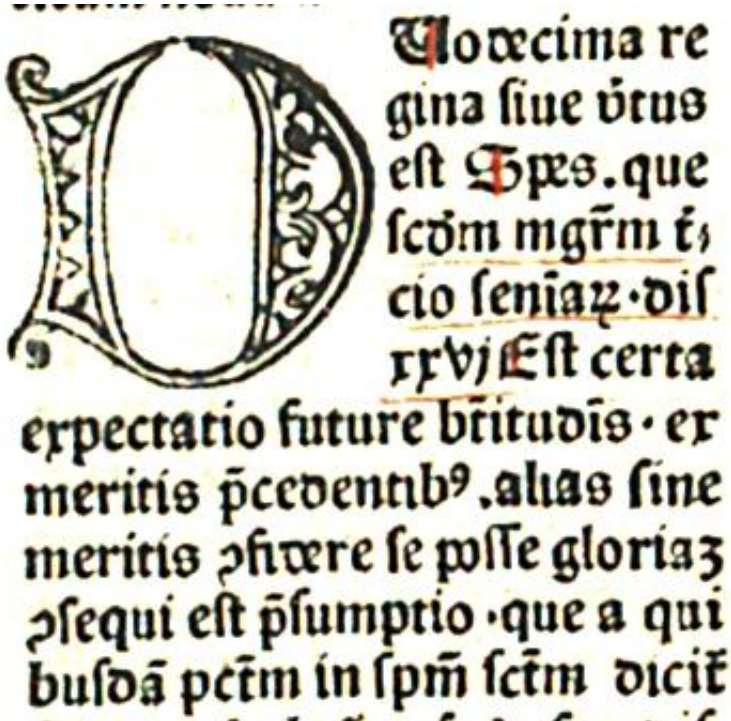 DUodecima re
gina ſiue v̄tus
eſt Spes. que
ſcd̄m mgr̄m t̄ꝛ
cio ſenīaꝝ · diſ
xxvj Eſt certa
expectatio future bt̄itudīs · ex
meritis p̄cedentibꝰ .alias ſine
meritis ꝯfidere ſe poſſe gloriaꝫ
ꝯſequi eſt p̄ſumptio · que a qui
buſdā pct̄m in ſpm̄ ſct̄m dicit̄